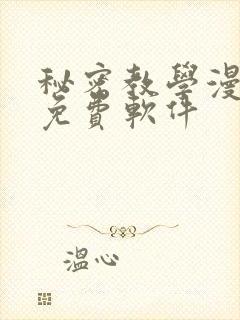 秘密教學漫
免費軟件
溫心